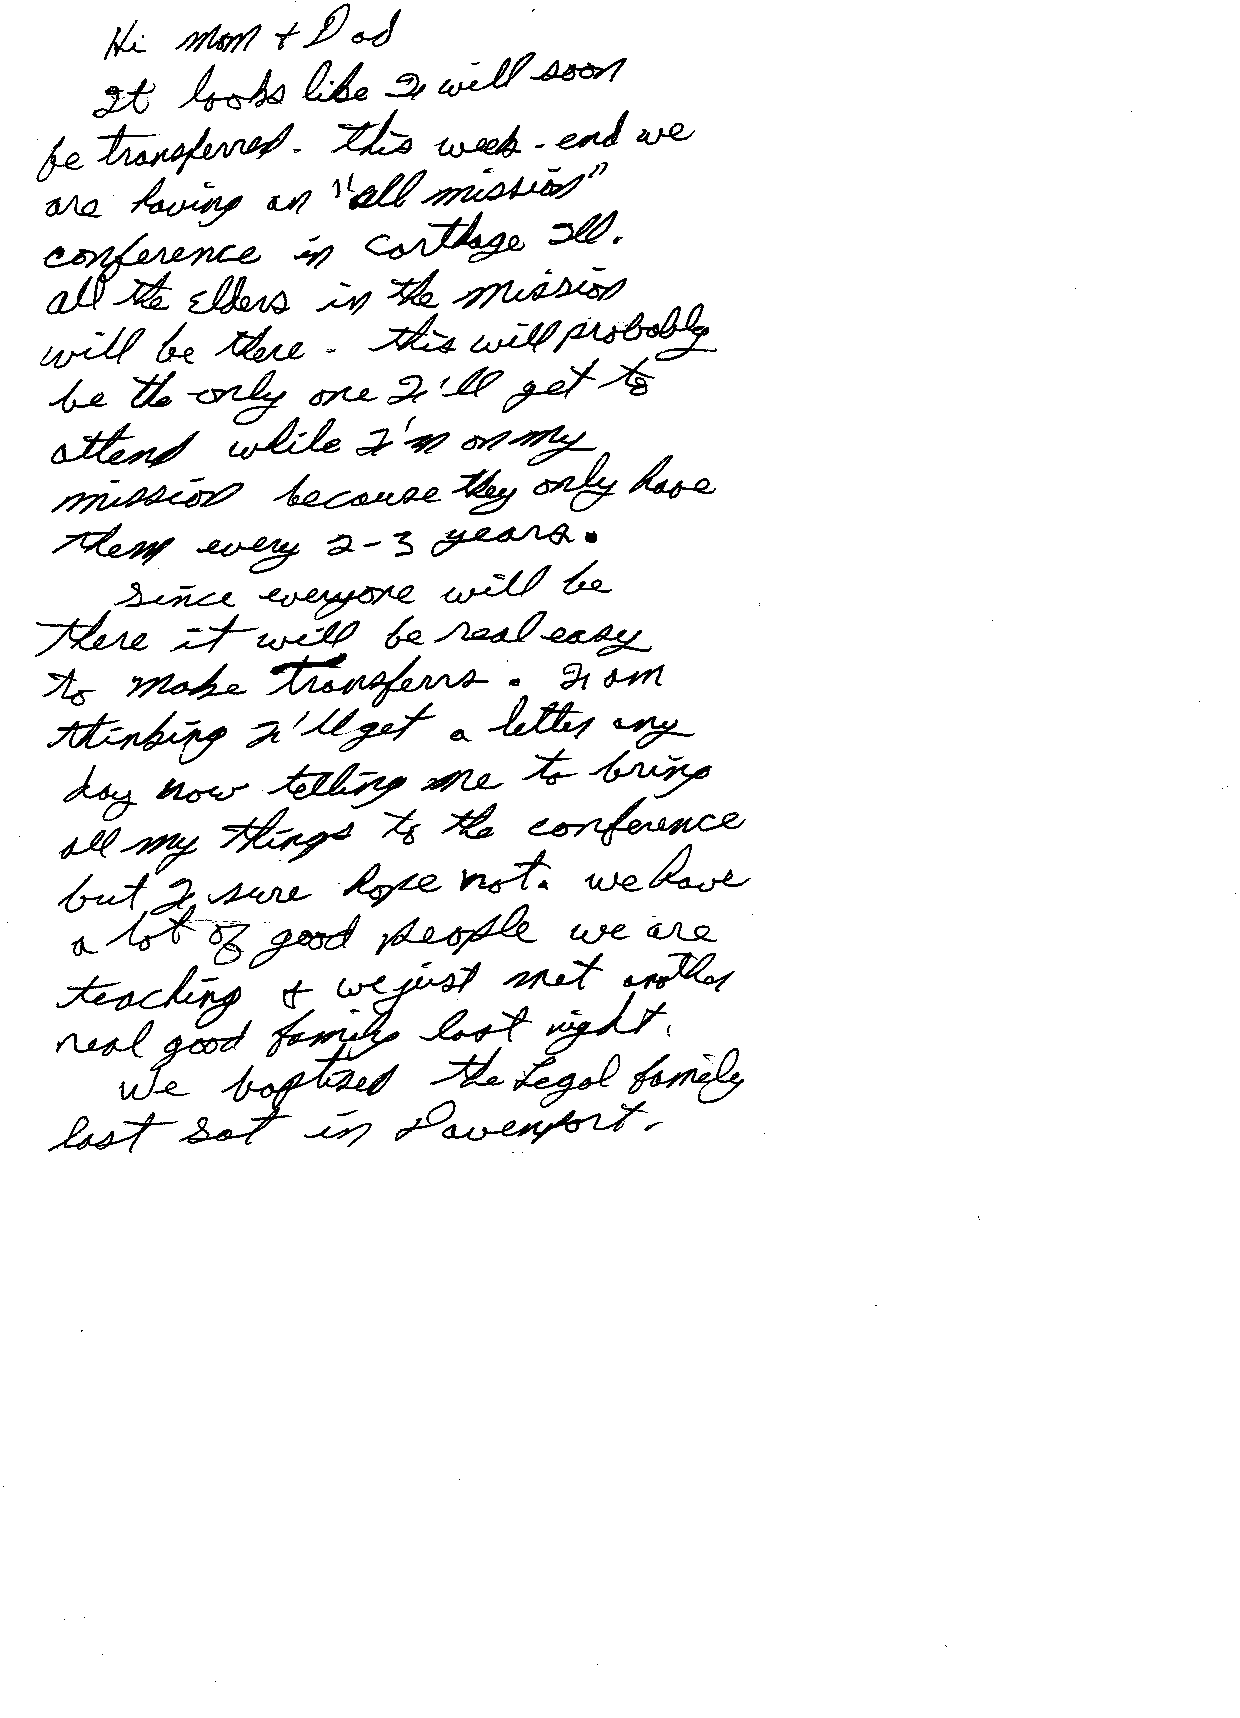 Hi Mom + Dad
It looks like I will soon
be transferred. This week-end we
are having an "all mission"
conference in Carthage Ill.
all the Elders in the mission
will be there. this will probably
be the only one I'll get to
attend while I'm on my
mission because they only have
them every 2-3 years.
Since everyone will be
there it will be real easy
to make transferrs. I am
thinking I'll get a letter any
day now telling me to bring
all my things to the conference
but I sure hope not. we have
a lot of good people we are
teaching + we just met another
real good family last night.
We baptized the Legal family
last Sat in Davenport.